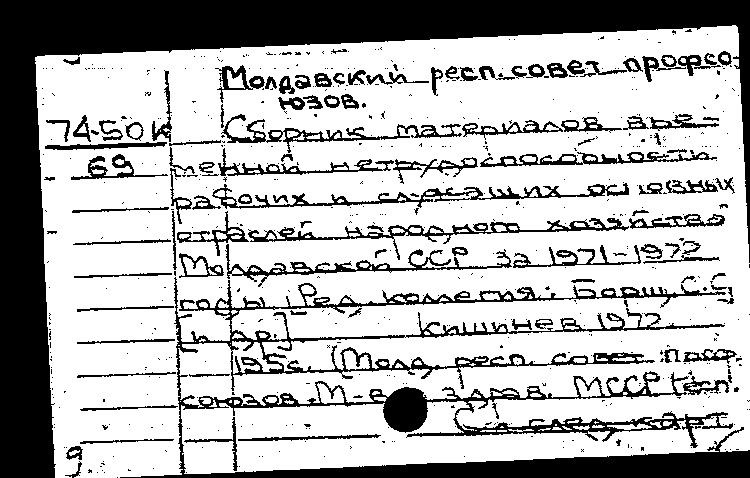 Молдавский респ. совет профсо-
юзов.
74-50к
69
Сборник материалов вре-
менной нетрудоспособности
рабочих и служащих основных
отраслей народного хозяйства
Молдавской ССР за 1971-1972
годы. Ред. коллегия: Борщ, С.С.
[и др.] Кишинев 1972.
195с. (Молд. респ. совет проф.
союзов. М-во здрав. МССР
См след. карт.
9.